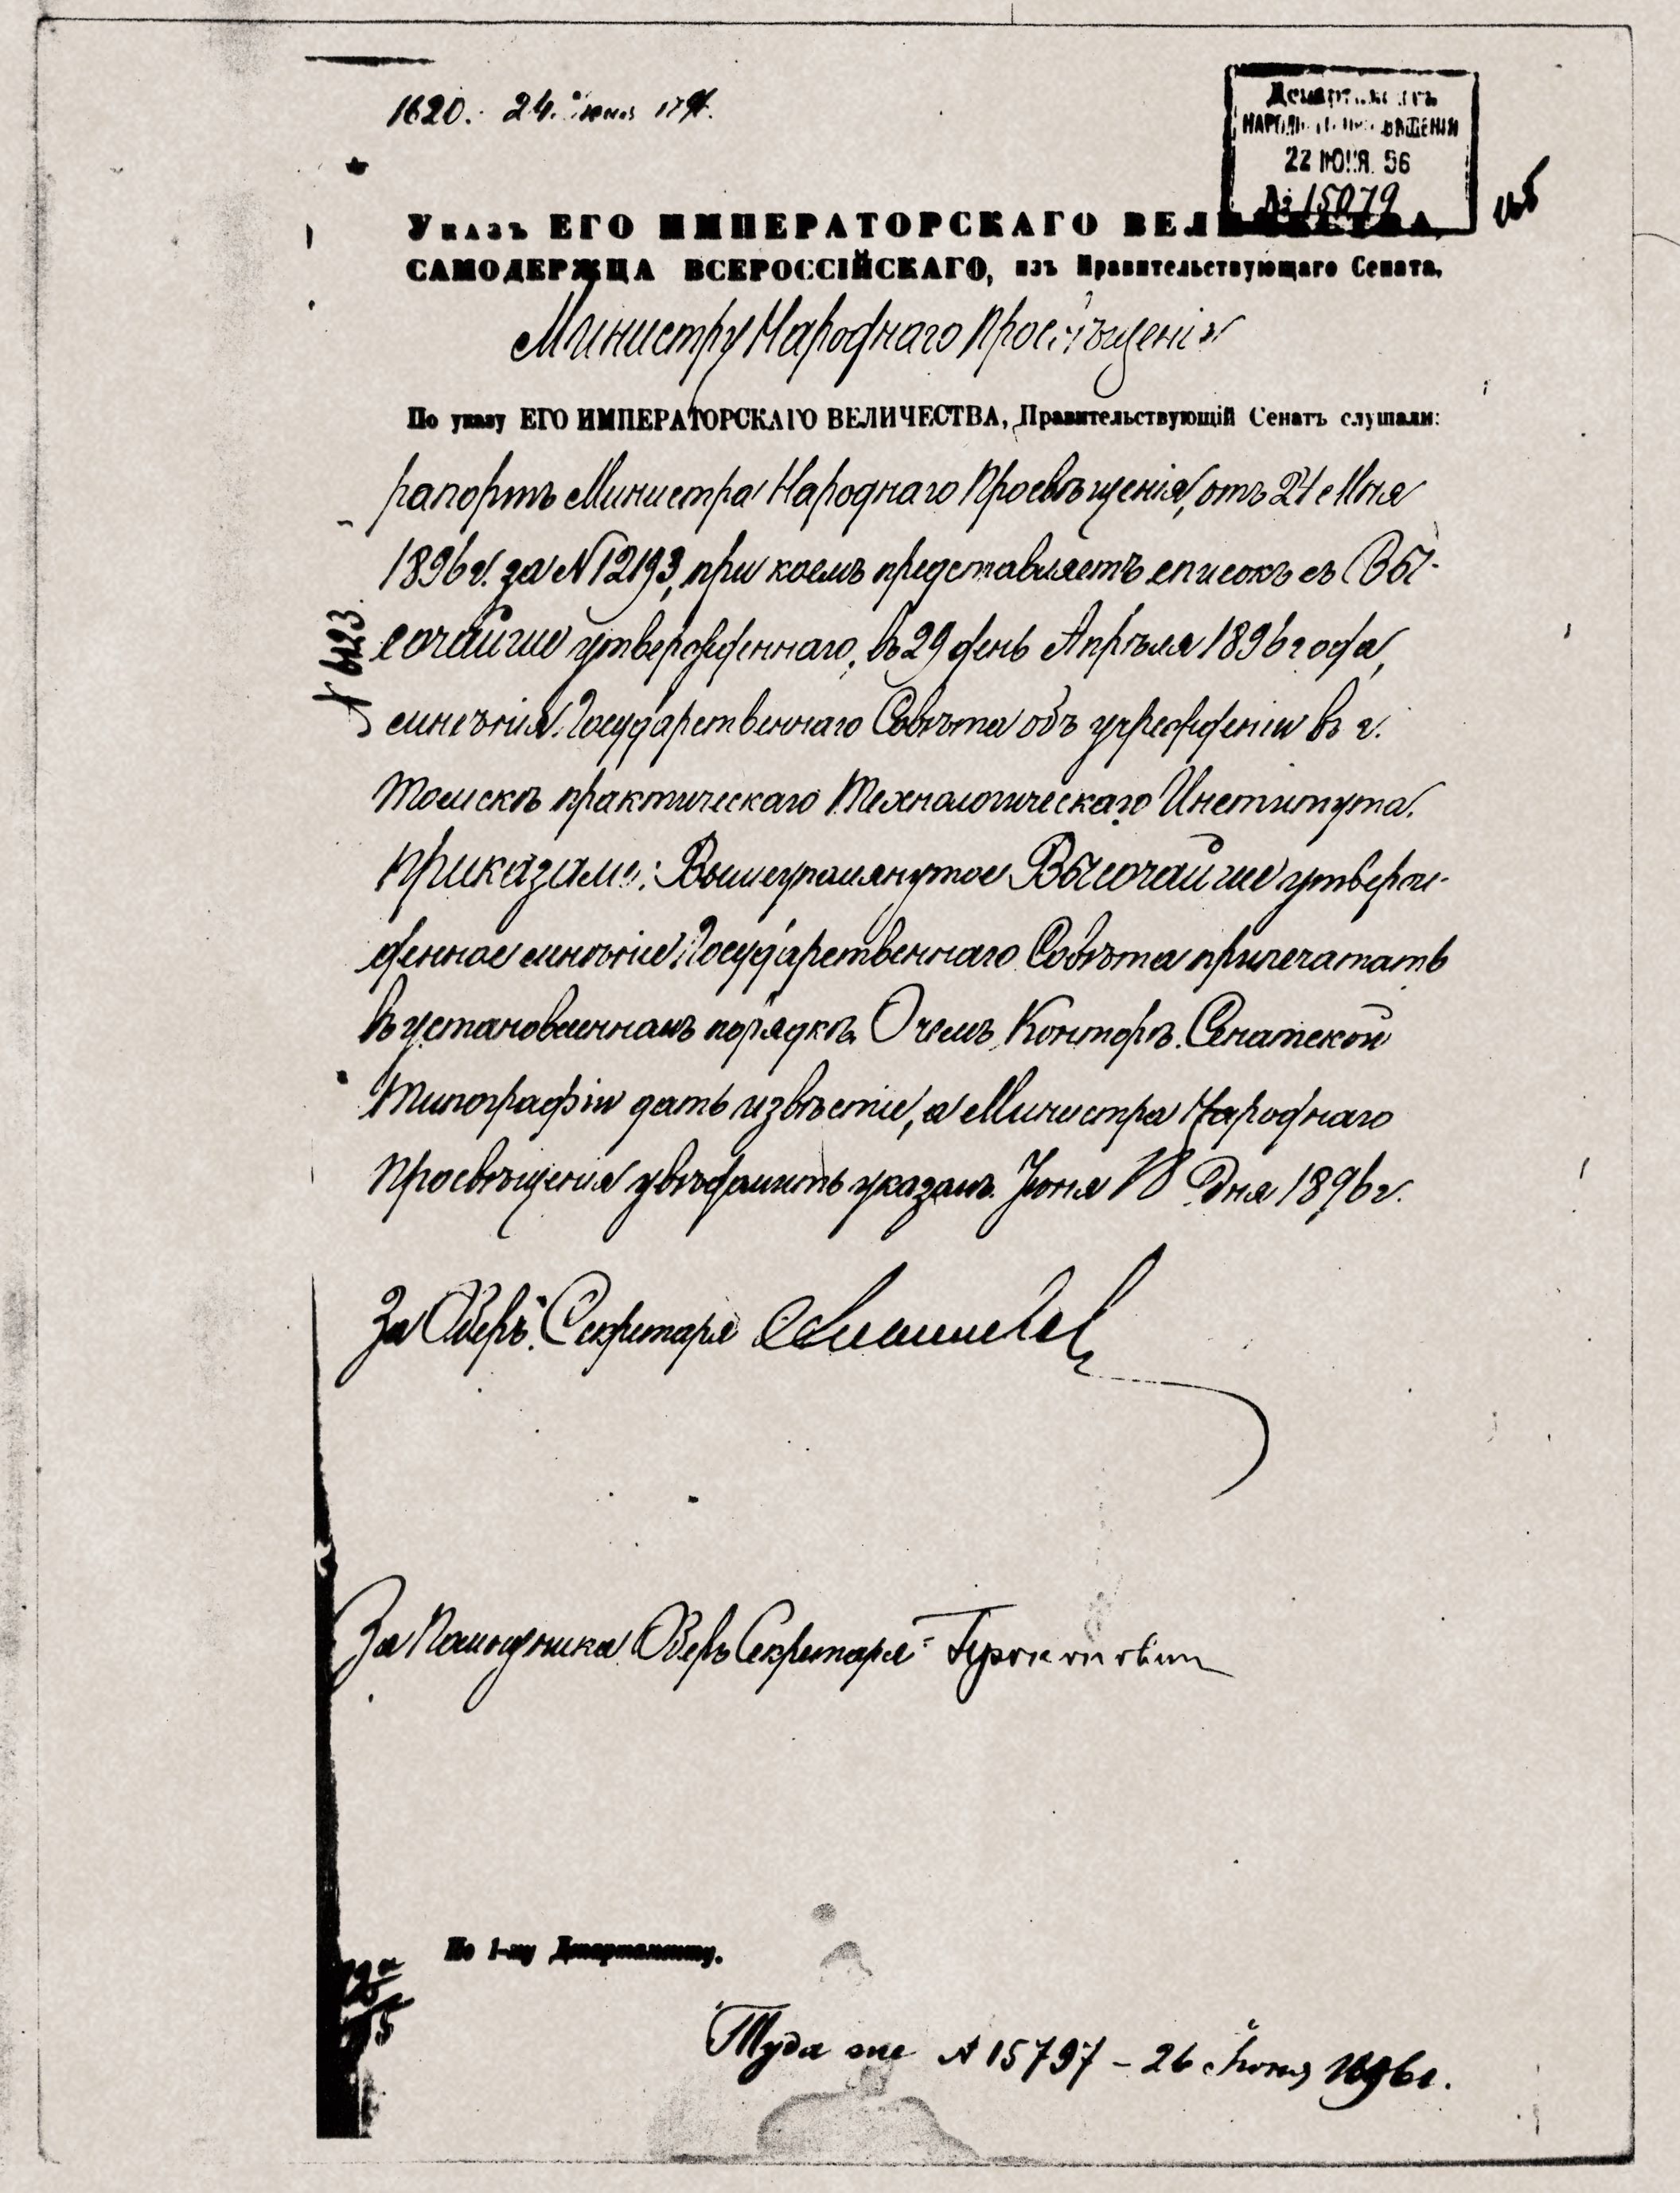 1620. 24. июня
Департаментъ
НАРОДНАГО ПРОСВѢЩЕНІЯ
22 ІЮНЯ. 96
№ 15079
Указъ ЕГО ИМПЕРАТОРСКАГО ВЕЛИЧЕСТВА,
САМОДЕРЖЦА ВСЕРОССІЙСКАГО, изъ Правительствующаго Сената,
Министру Народнаго Просвѣщенія
По указу ЕГО ИМПЕРАТОРСКАГО ВЕЛИЧЕСТВА, Правительствующій Сенатъ слушали:
рапортъ Министра Народнаго Просвѣщенія, отъ 24 Мая
1896 г. за № 12193, при коемъ представляетъ списокъ съ Вы-
сочайше утвержденнаго, въ 29 день Апрѣля 1896 года,
мнѣнія Государственнаго Совѣта объ учрежденіи въ г.
Томскѣ практическаго Технологическаго Института.
Приказали: Вышеупомянутое Высочайше утверж-
денное мнѣніе Государственнаго Совѣта припечатать
въ установленномъ порядкѣ. О чемъ, Конторѣ Сенатской
Типографіи дать извѣстіе, а Министра Народнаго
Просвѣщенія увѣдомить указомъ. Іюня 18 дня 1896 г.
№ 6123
За Оберъ Секретаря
За Помощника Оберъ Секретаря Прокоповичъ
По 1-му Департаменту.
Туда же № 15797 – 26 Іюня 1896 г.